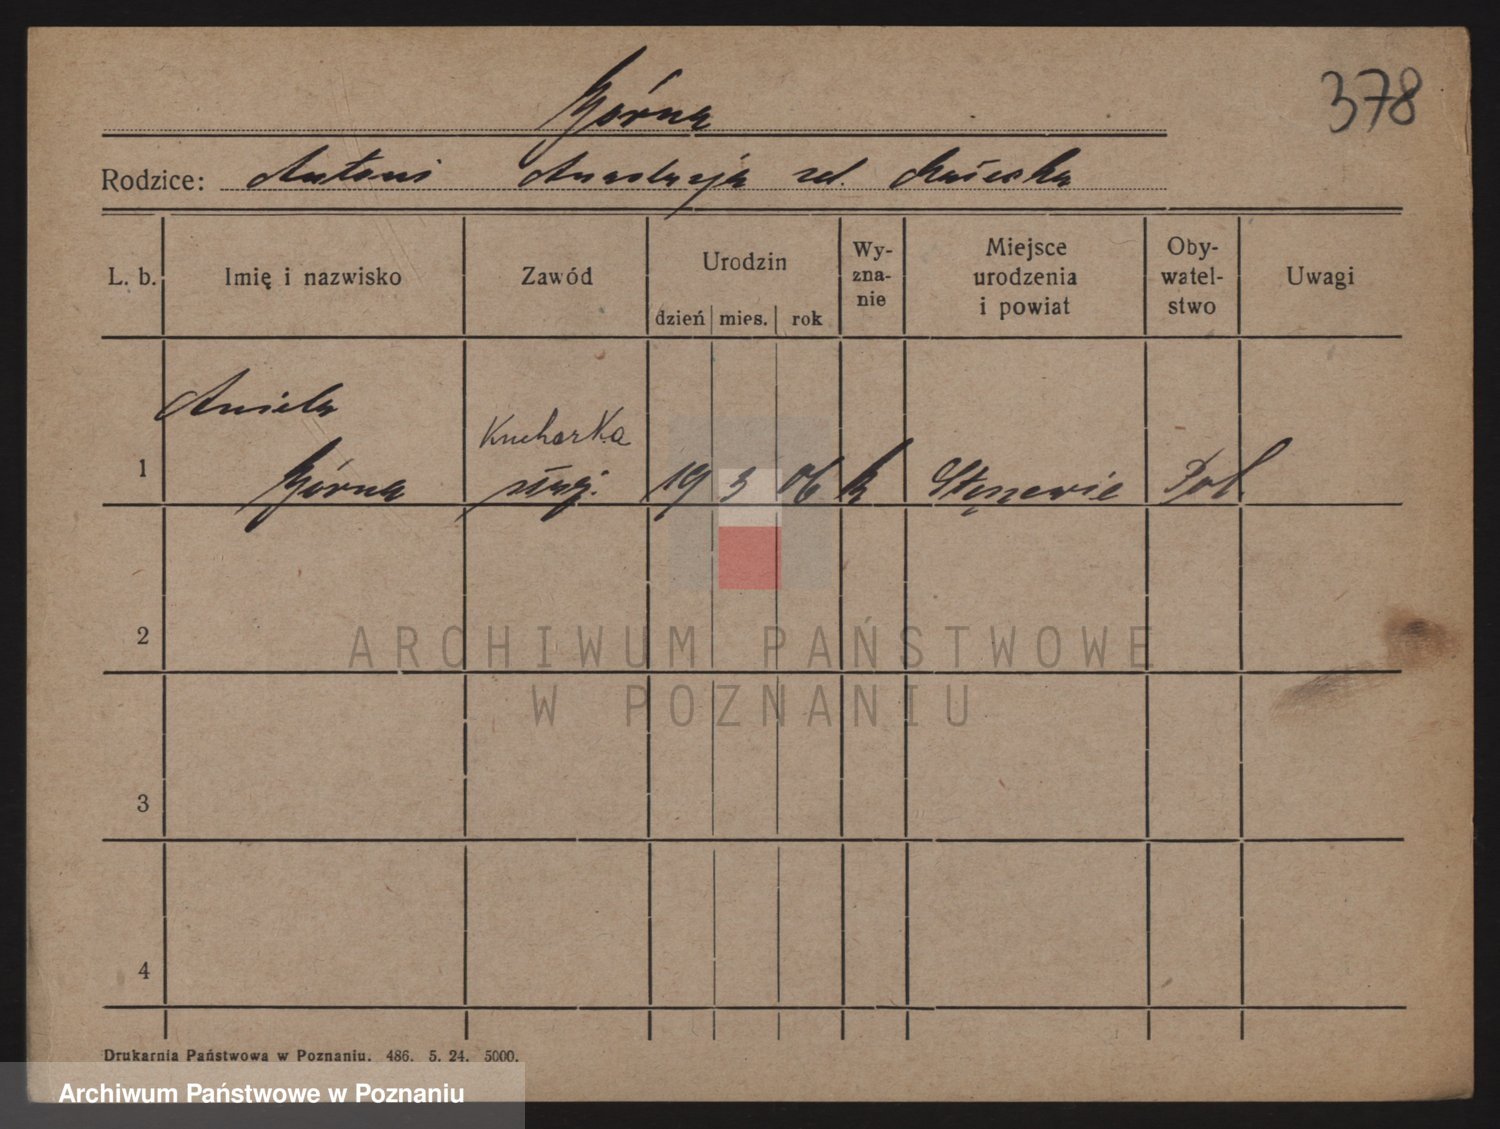 378
Górna
Rodzice: Antoni Anastazja
L. b. Imię i nazwisko Zawód Urodzin dzień mies. rok Wy-zna-nie Miejsce urodzenia i powiat Oby-watel-stwo Uwagi
Aniela
Kucharka
1 Górna służ. 19 3 06 k Stęszewie Pol.
2
ARCHIWUM PAŃSTWOWE
W POZNANIU
3
4
Drukarnia Państwowa w Poznaniu. 486. 5. 24. 5000.
Archiwum Państwowe w Poznaniu